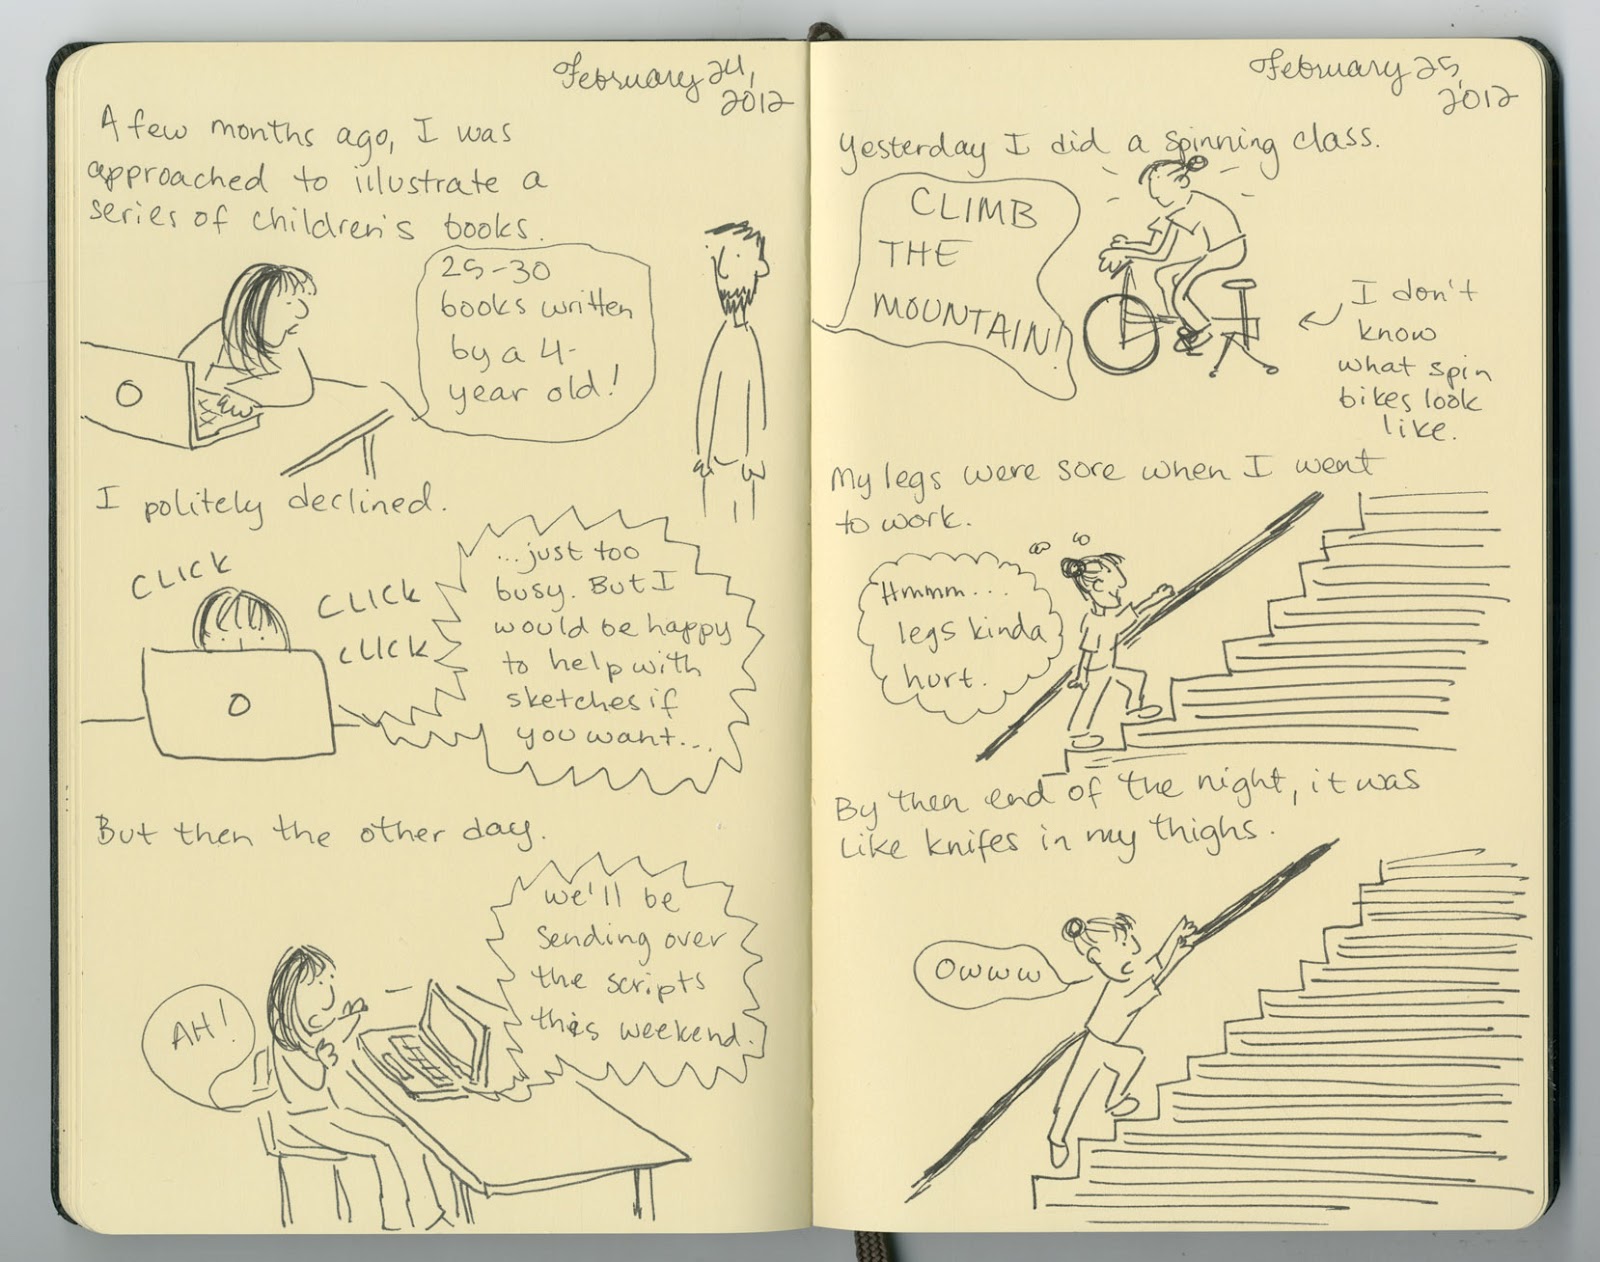 February 24,
2012
A few months ago, I was
approached to illustrate a
series of children's books.
25-30
books written
by a 4-
year old!
I politely declined.
CLICK
CLICK
CLICK
...just too
busy. But I
would be happy
to help with
sketches if
you want...
But then the other day.
we'll be
sending over
the scripts
this weekend.
AH!
February 25,
2012
Yesterday I did a spinning class.
CLIMB
THE
MOUNTAIN!
I don't
know
what spin
bikes look
like.
My legs were sore when I went
to work.
Hmmm...
legs kinda
hurt.
By then end of the night, it was
like knifes in my thighs.
owww